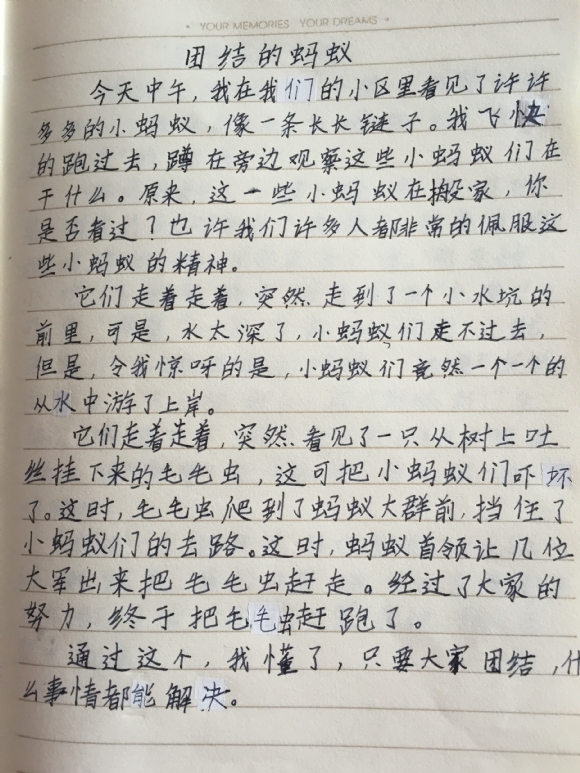 YOUR MEMORIES YOUR DREAMS
团结的蚂蚁
今天中午，我在我们的小区里看见了许许
多多的小蚂蚁，像一条长长链子。我飞快
的跑过去，蹲在旁边观察这些小蚂蚁们在
干什么。原来，这一些小蚂蚁在搬家，你
是否看过？也许我们许多人都非常的佩服这
些小蚂蚁的精神。
它们走着走着，突然走到了一个小水坑的
前里，可是，水太深了，小蚂蚁们走不过去，
但是，令我惊呀的是，小蚂蚁们竟然一个一个的
从水中游了上岸。
它们走着走着，突然看见了一只从树上吐
丝挂下来的毛毛虫，这可把小蚂蚁们吓坏
了。这时，毛毛虫爬到了蚂蚁大群前，挡住了
小蚂蚁们的去路。这时，蚂蚁首领让几位
大军出来把毛毛虫赶走。经过了大家的
努力，终于把毛毛虫赶跑了。
通过这个，我懂了，只要大家团结，什
么事情都能解决。